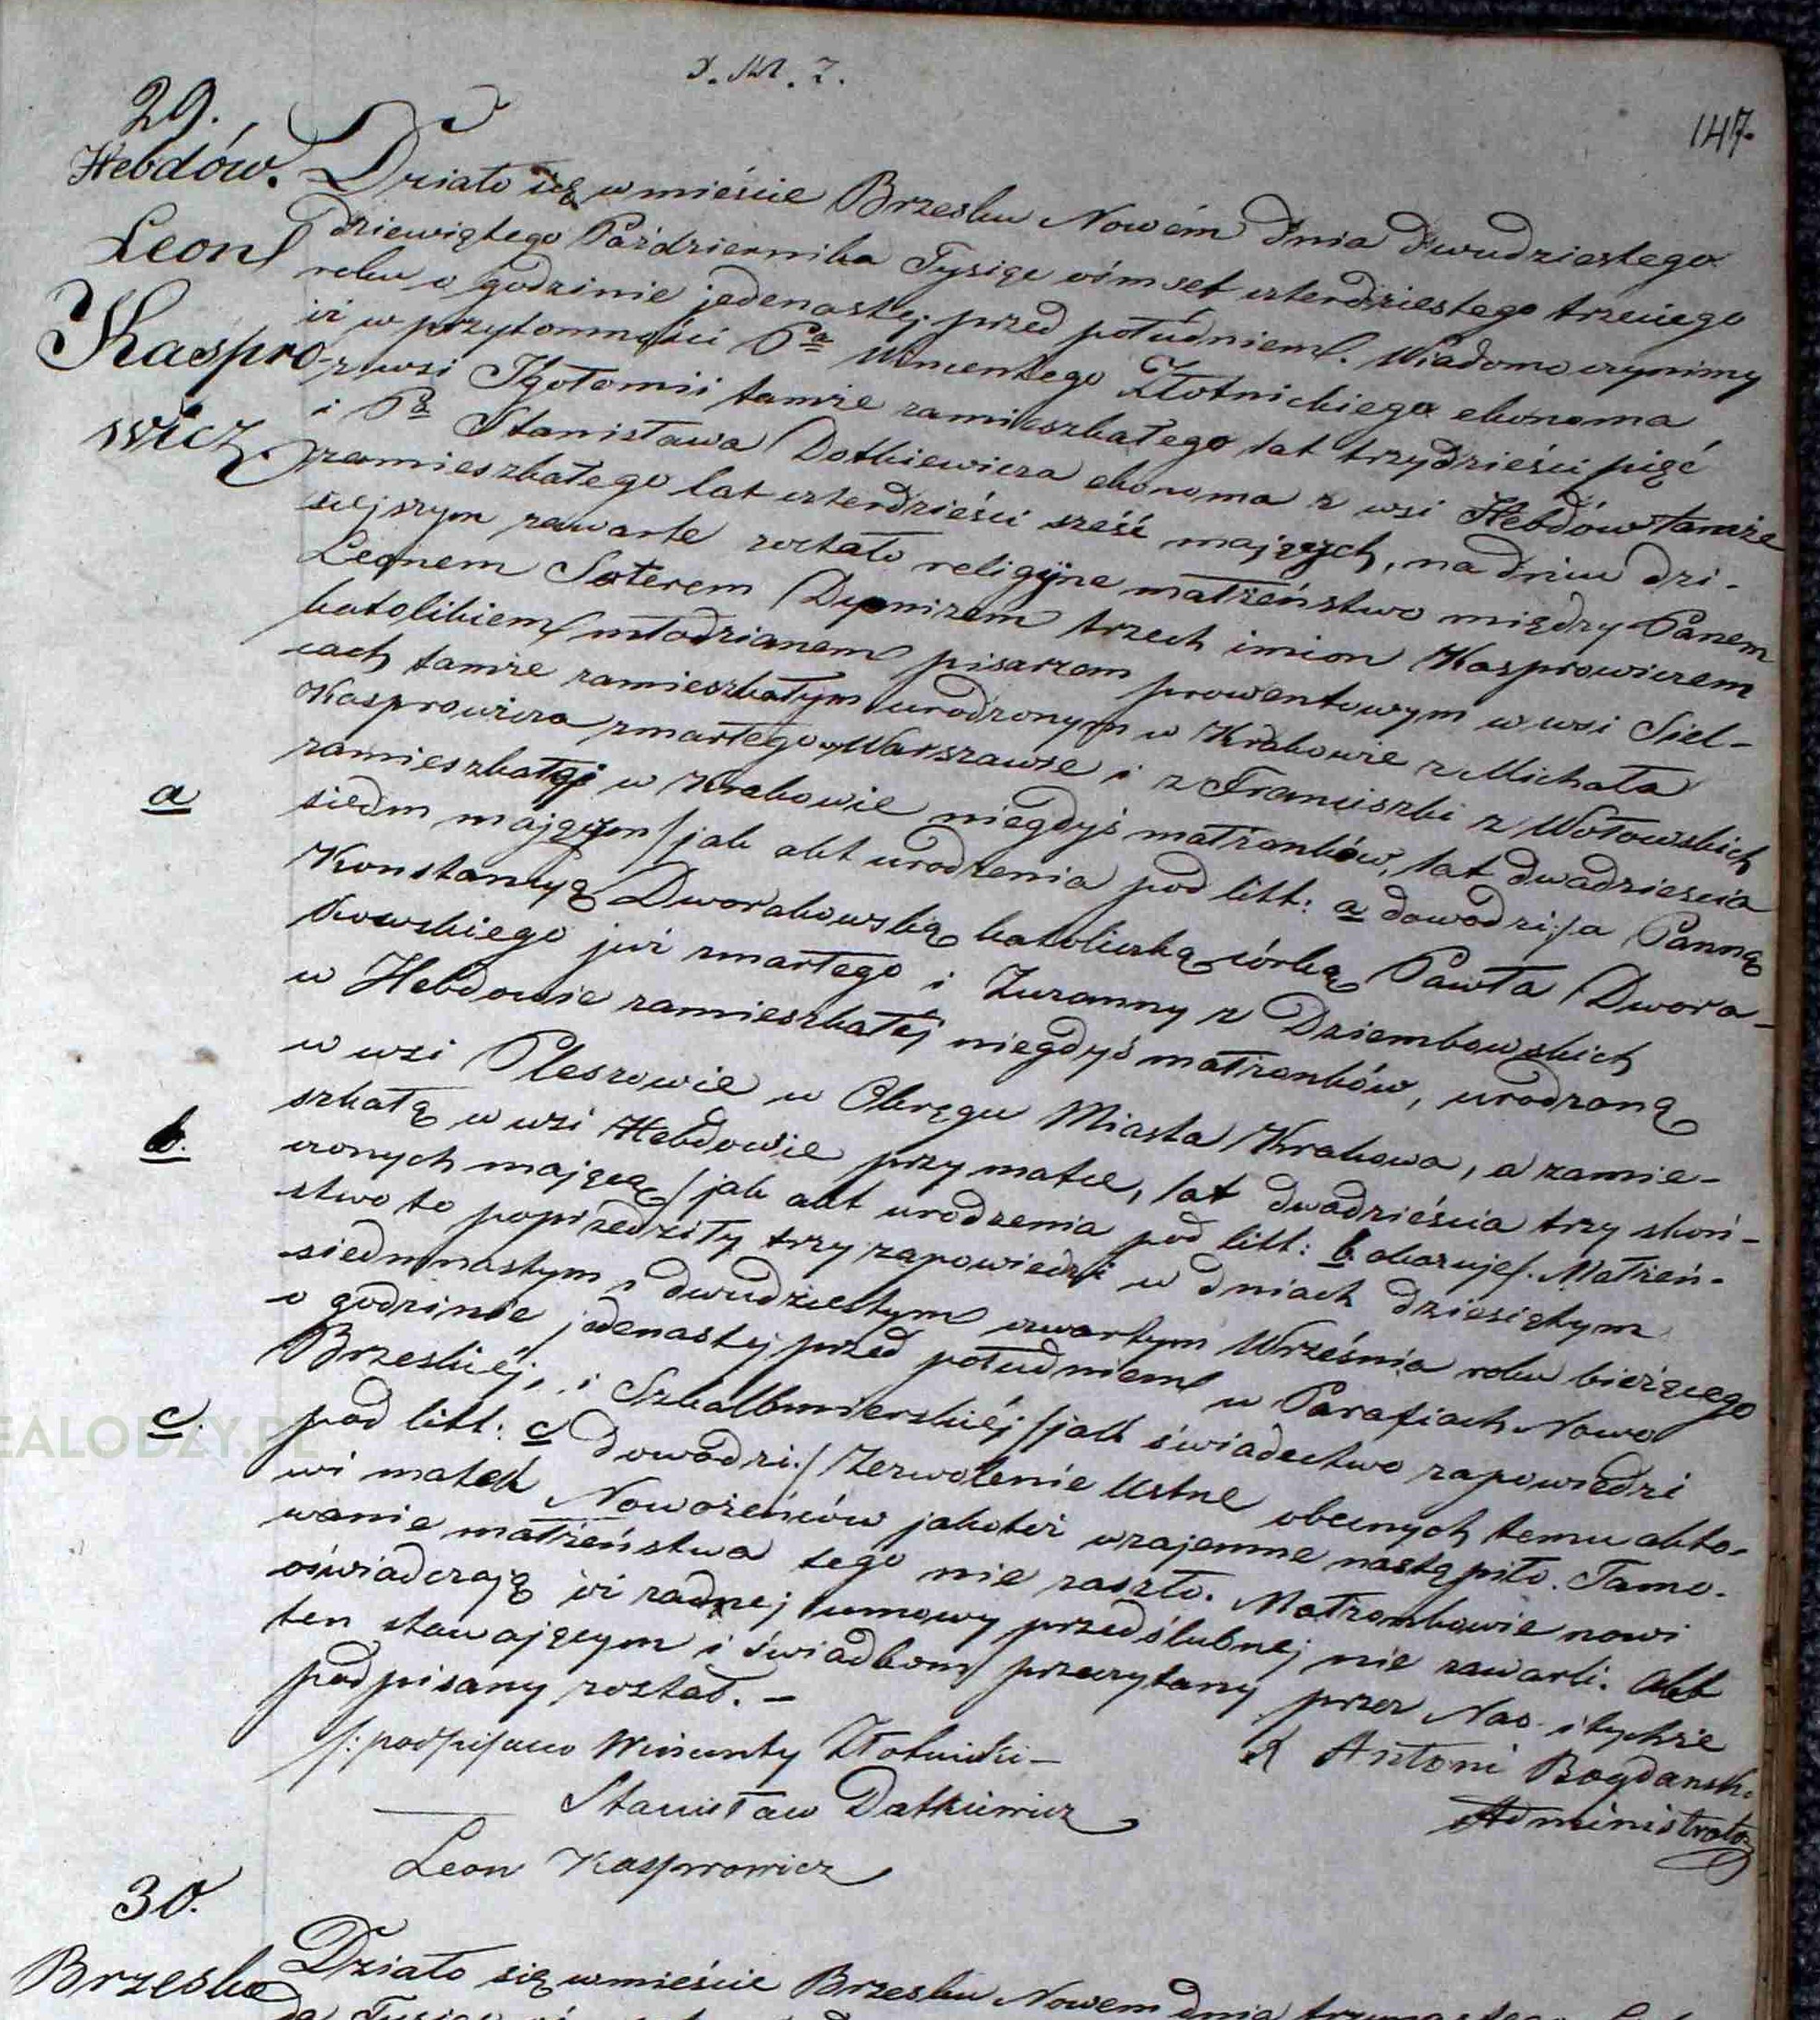 J. M. J.
147.
29.
Hebdów.
Leon
Kaspro-
wicz.
Działo się w mieście Brzesku Nowém dnia dwudziestego
dziewiątego Października Tysiąc ośmset czterdziestego trzeciego
roku o godzinie jedenastej przed południem. Wiadomo czynimy
iż w przytomności Pa Wincentego Złotnickiego ekonoma
z wsi Igołomii tamże zamieszkałego lat trzydzieści pięć
i Pa Stanisława Datkiewicza ekonoma z wsi Hebdów tamże
zamieszkałego lat czterdzieści sześć mających, na dniu dzi-
siejszym zawarte zostało religijne małżeństwo między Panem
Leonem Soterem Dyonizem trzech imion Kasprowiczem
katolikiem młodzianem pisarzem prowentowym w wsi Siel-
cach tamże zamieszkałym urodzonym w Krakowie z Michała
Kasprowicza zmarłego w Warszawie i z Franciszki z Wołowskich
zamieszkałej w Krakowie niegdyś małżonków, lat dwadzieścia
a
siedm mającym /jak akt urodzenia pod litt: a dowodzi:/ a Panną
Konstancyą Dworakowską katoliczką córką Pawła Dwora-
kowskiego już zmarłego i Zuzanny z Dziembowskich
w Hebdowie zamieszkałej niegdyś małżonków, urodzoną
w wsi Pleszowie w Okręgu Miasta Krakowa, a zamie-
szkałą w wsi Hebdowie przy matce, lat dwadzieścia trzy skoń-
b.
czonych mającą /jak akt urodzenia pod litt: b. okazuje/. Małżeń-
stwo to poprzedziły trzy zapowiedzi w dniach dziesiątym
siedmnastym i dwudziestym czwartym Września roku bieżącego
o godzinie jedenastej przed południem w Parafiach Nowo
Brzeskiéj, i Szkalbmierskiéj /jak świadectwo zapowiedzi
c.
pod litt: c dowodzi:/ Zezwolenie ustne obecnych temu akto-
wi matek Nowożeńców jakoteż wzajemne nastąpiło. Tamo-
wanie małżeństwa tego nie zaszło. Małżonkowie nowi
oświadczają iż żadnej umowy przedślubnej nie zawarli. Akt
ten stawającym i świadkom przeczytany przez Nas i tychże
podpisany został. –
/: podpisano Wincenty Złotnicki –
X Antoni Bogdański.
Stanisław Datkiewicz
Administrator
Leon Kasprowicz
30.
Brzesko
EALODZY.PL
Działo się w mieście Brzesku Nowem dnia trzynastego
Tysiąc